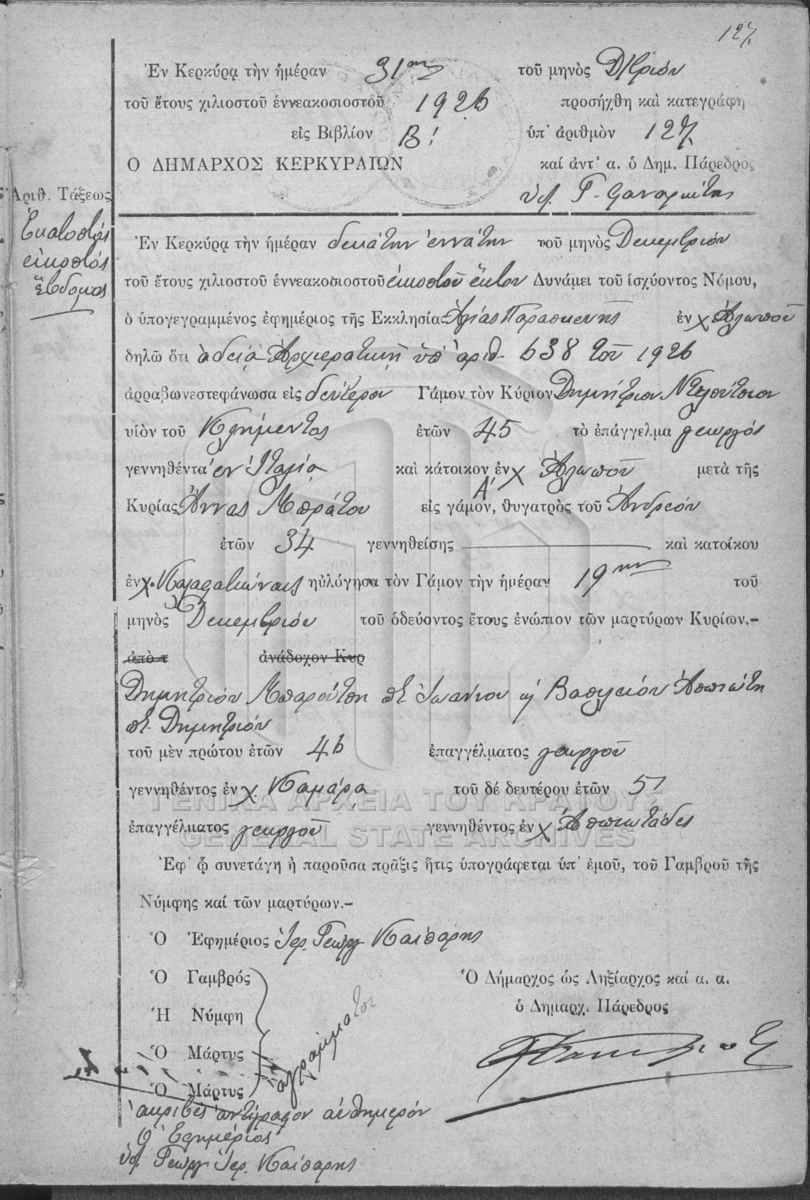 127
Ἐν Κερκύρᾳ τὴν ἡμέραν 31ην τοῦ μηνὸς Δ/βρίου
τοῦ ἔτους χιλιοστοῦ ἐννεακοσιοστοῦ 1926 προσήχθη καὶ κατεγράφη
εἰς Βιβλίον Β! ὑπ' ἀριθμὸν 127
Ο ΔΗΜΑΡΧΟΣ ΚΕΡΚΥΡΑΙΩΝ καὶ ἀντ' α. ὁ Δημ. Πάρεδρος
Ἀριθ. Τάξεως
Ἑκατοστὸς
εἰκοστὸς
ἕβδομος
Ἐν Κερκύρᾳ τὴν ἡμέραν δεκάτην ἐννάτην τοῦ μηνὸς Δεκεμβρίου
τοῦ ἔτους χιλιοστοῦ ἐννεακοσιοστοῦ εἰκοστοῦ ἕκτου Δυνάμει τοῦ ἰσχύοντος Νόμου,
ὁ ὑπογεγραμμένος ἐφημέριος τῆς Ἐκκλησίας Ἁγίας Παρασκευῆς ἐν χ Ἀλωποῦ
δηλῶ ὅτι ἀδείᾳ Ἀρχιερατικῇ ὑπ' ἀριθ. 638 τοῦ 1926
ἀρραβωνεστεφάνωσα εἰς δεύτερον Γάμον τὸν Κύριον Δημήτριον
υἱὸν τοῦ Κλήμεντος ἐτῶν 45 τὸ ἐπάγγελμα γεωργὸς
γεννηθέντα ἐν Ἰταλίᾳ καὶ κάτοικον ἐν χ Ἀλωποῦ μετὰ τῆς
Κυρίας Ἄννας Μπράτου εἰς Α' γάμον, θυγατρὸς τοῦ Ἀνδρέου
ἐτῶν 34 γεννηθείσης καὶ κατοίκου
ἐν χ. ηὐλόγησα τὸν Γάμον τὴν ἡμέραν 19ην τοῦ
μηνὸς Δεκεμβρίου τοῦ ὁδεύοντος ἔτους ἐνώπιον τῶν μαρτύρων Κυρίων.-
ἀπὸ τ ἀνάδοχον Κυρ
Δημητρίου Μπαρούτση π Ἰωάννου ἢ Βασιλείου Ἀσπιώτη
π Δημητρίου
τοῦ μὲν πρώτου ἐτῶν 46 ἐπαγγέλματος γεωργοῦ
γεννηθέντος ἐν χ. Καμάρα τοῦ δέ δευτέρου ἐτῶν 51
ἐπαγγέλματος γεωργοῦ γεννηθέντος ἐν χ Ἀσπιωτάδες
ΓΕΝΙΚΑ ΑΡΧΕΙΑ ΤΟΥ ΚΡΑΤΟΥΣ
GENERAL STATE ARCHIVES
Ἐφ' ᾧ συνετάγη ἡ παροῦσα πρᾶξις ἥτις ὑπογράφεται ὑπ' ἐμοῦ, τοῦ Γαμβροῦ τῆς
Νύμφης καί τῶν μαρτύρων.-
Ὁ Ἐφημέριος Ἱερ. Γεώργ Καίσαρης
Ὁ Γαμβρός
Ἡ Νύμφη
Ὁ Μάρτυς
Ὁ Μάρτυς
ἀγράμματοι
Ὁ Δήμαρχος ὡς Ληξίαρχος καί α. α.
ὁ Δημαρχ. Πάρεδρος
ἀκριβὲς ἀντίγραφον αὐθημερόν
Ὁ Ἐφημέριος
ὑπ. Γεώργ Ἱερ. Καίσαρης